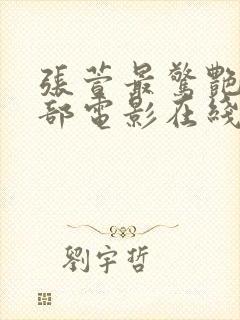 張萱最驚艷
部電影在綫
劉宇哲